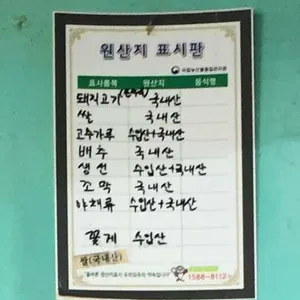 원산지 표시판
국립농산물품질관리원
표시품목 원산지 음식명
돼지고기 국내산
쌀 국내산
고추가루 수입산+국내산
배추 국내산
생선 수입산+국내산
조막 국내산
야채류 수입산+국내산
꽃게 수입산
쌀(국내산)
1588-8112